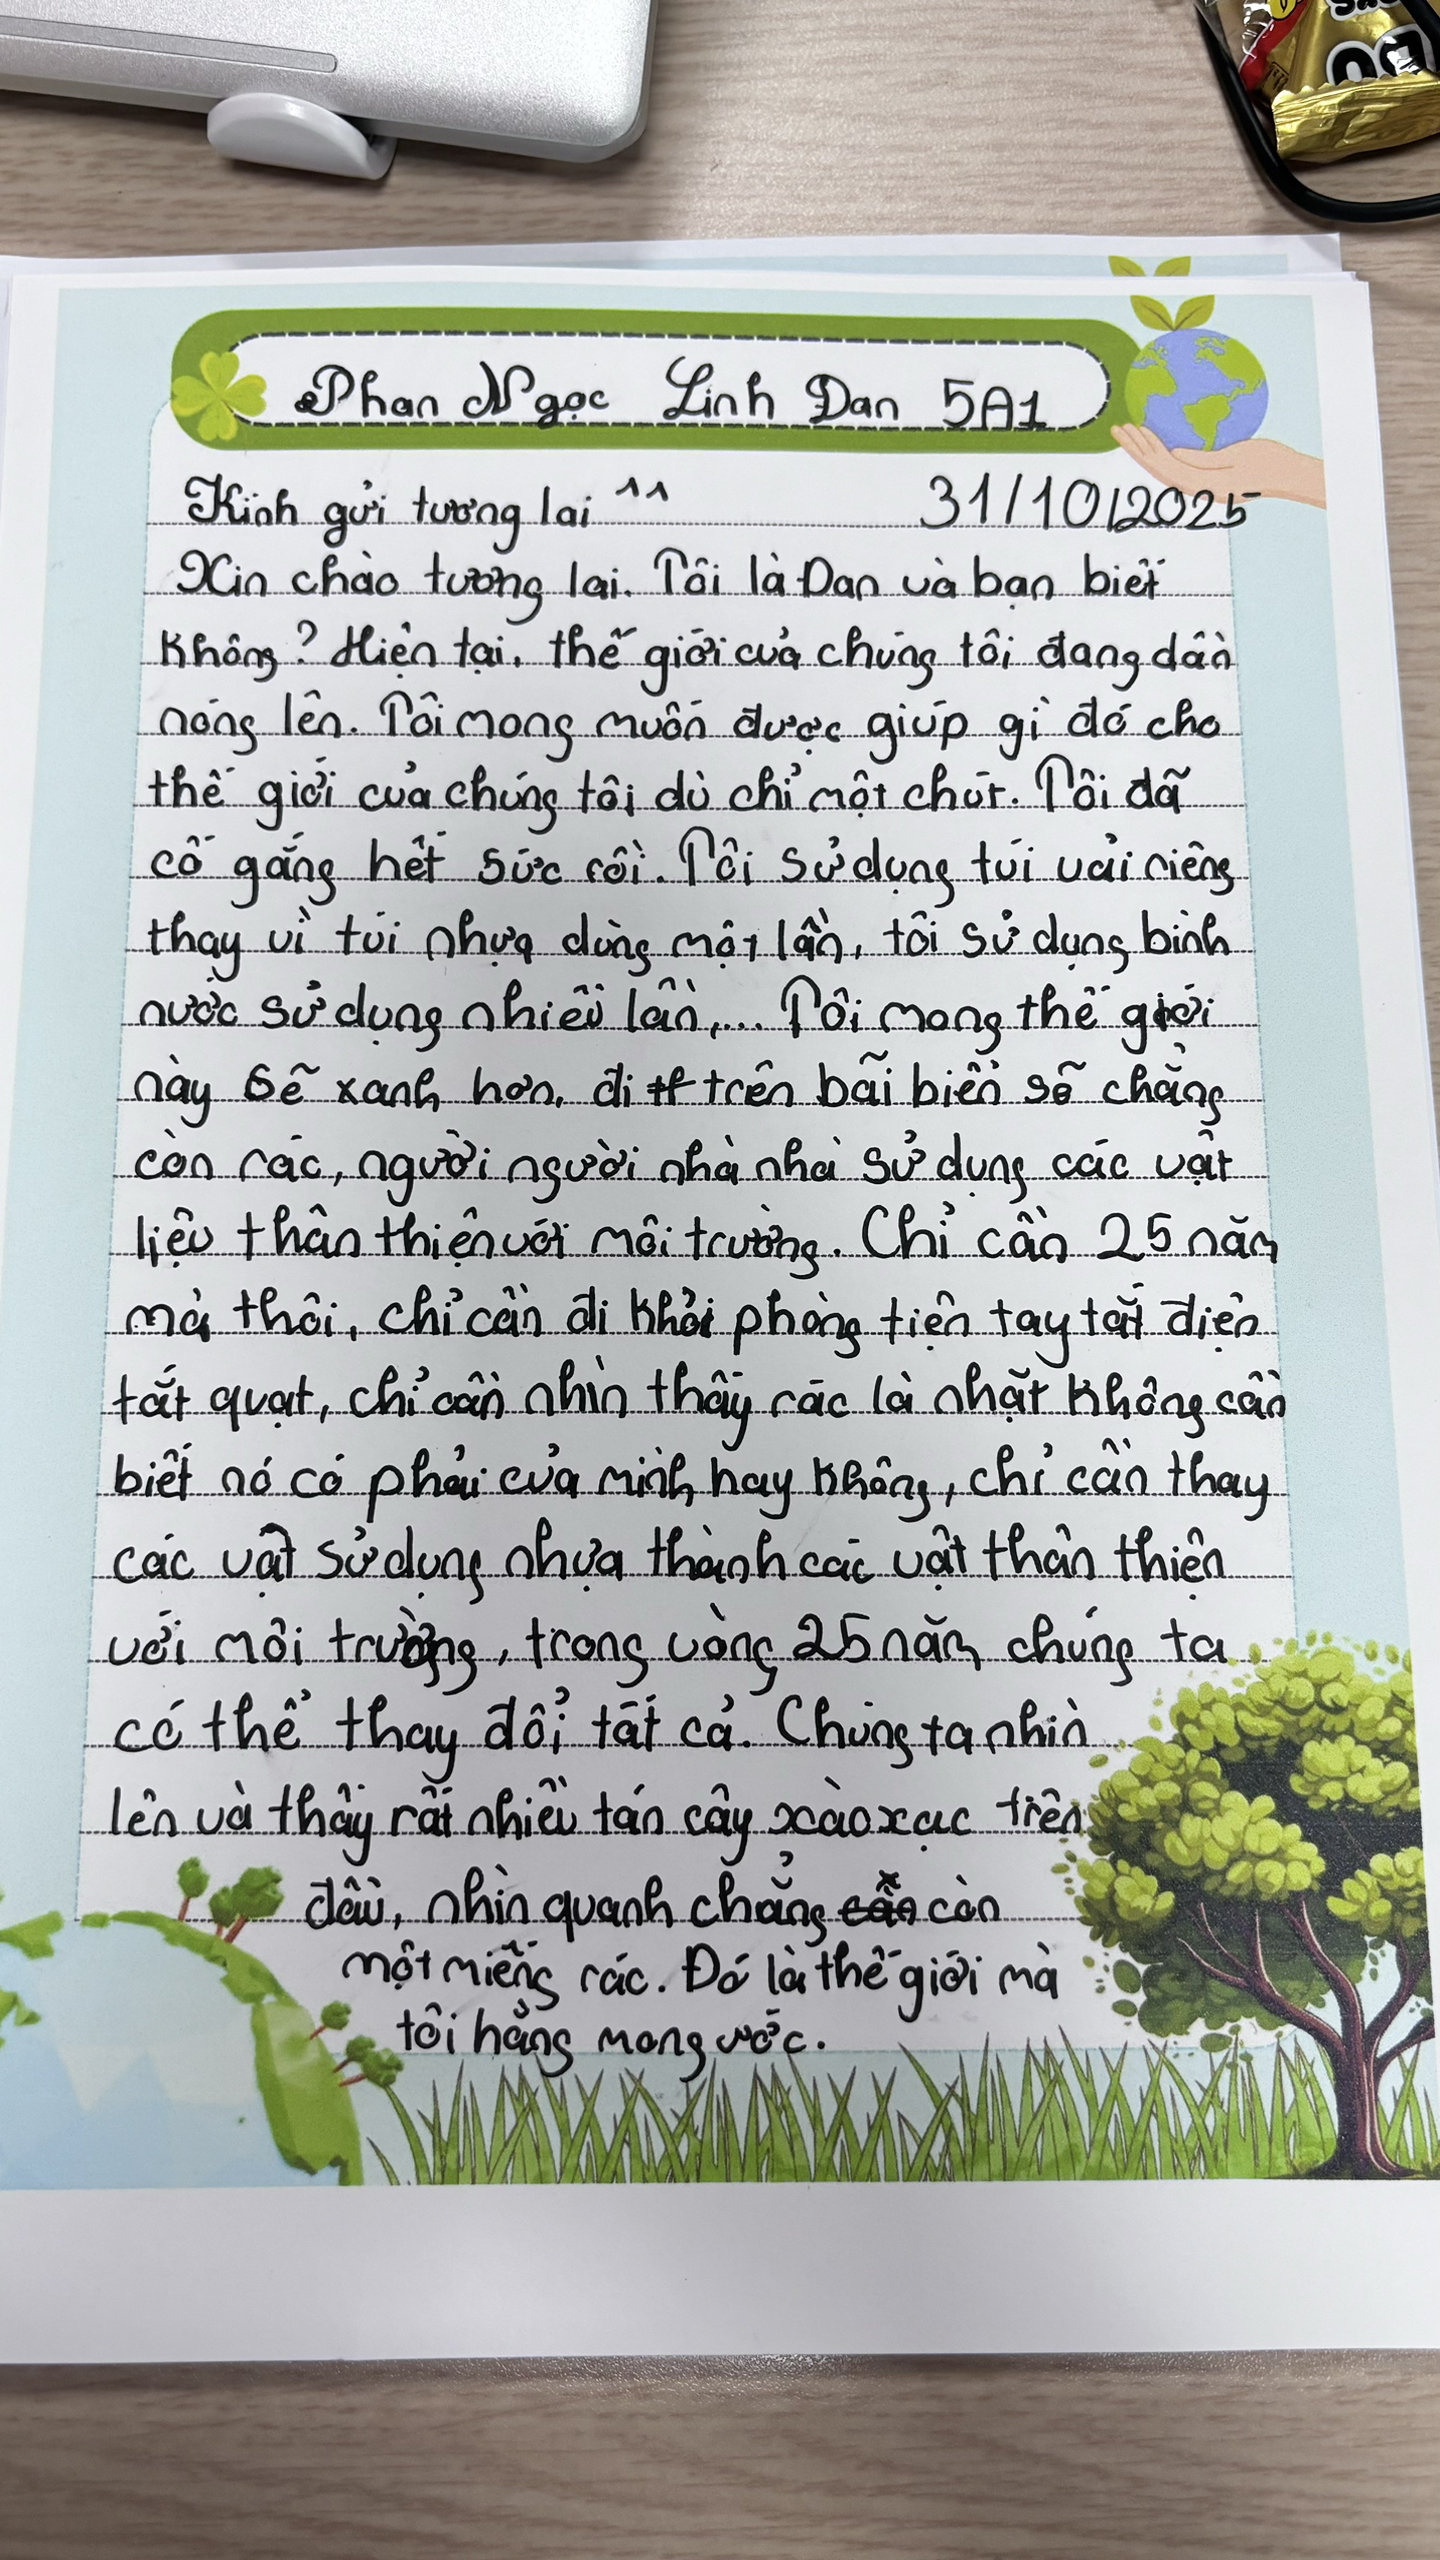 Phan Ngọc Linh Đan 5A1
Kính gửi tương lai ^^ 31/10/2025
Xin chào tương lai. Tôi là Đan và bạn biết
không? Hiện tại, thế giới của chúng tôi đang dần
nóng lên. Tôi mong muốn được giúp gì đó cho
thế giới của chúng tôi dù chỉ một chút. Tôi đã
cố gắng hết sức rồi. Tôi sử dụng túi vải riêng
thay vì túi nhựa dùng một lần, tôi sử dụng bình
nước sử dụng nhiều lần,... Tôi mong thế giới
này sẽ xanh hơn, đi trên bãi biển sẽ chẳng
còn rác, người người nhà nhà sử dụng các vật
liệu thân thiện với môi trường. Chỉ cần 25 năm
mà thôi, chỉ cần đi khỏi phòng tiện tay tắt điện
tắt quạt, chỉ cần nhìn thấy rác là nhặt không cần
biết nó có phải của mình hay không, chỉ cần thay
các vật sử dụng nhựa thành các vật thân thiện
với môi trường, trong vòng 25 năm chúng ta
có thể thay đổi tất cả. Chúng ta nhìn
lên và thấy rất nhiều tán cây xào xạc trên
đầu, nhìn quanh chẳng còn
một miếng rác. Đó là thế giới mà
tôi hằng mong ước.